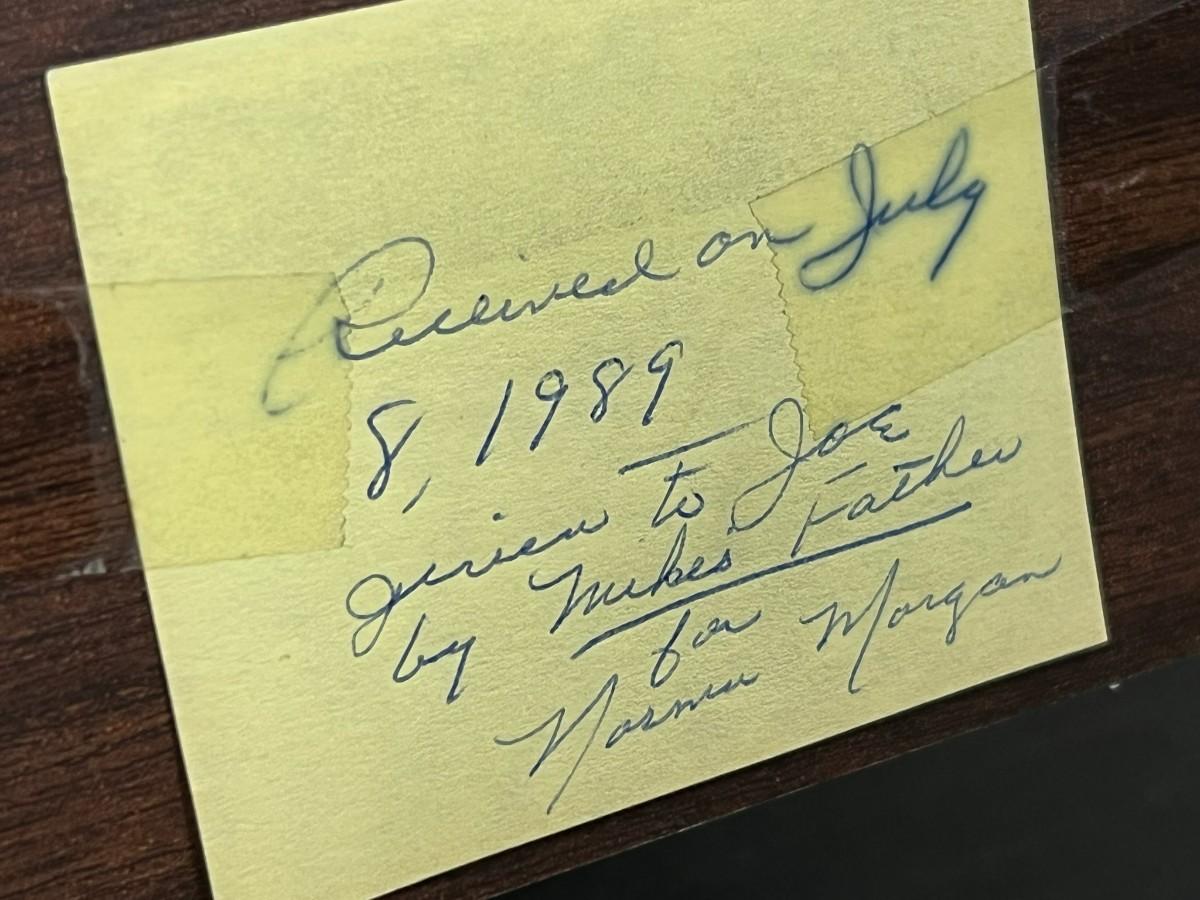 Received on July
8, 1989
given to Joe
by Mikes Father
for
Norma Morgan